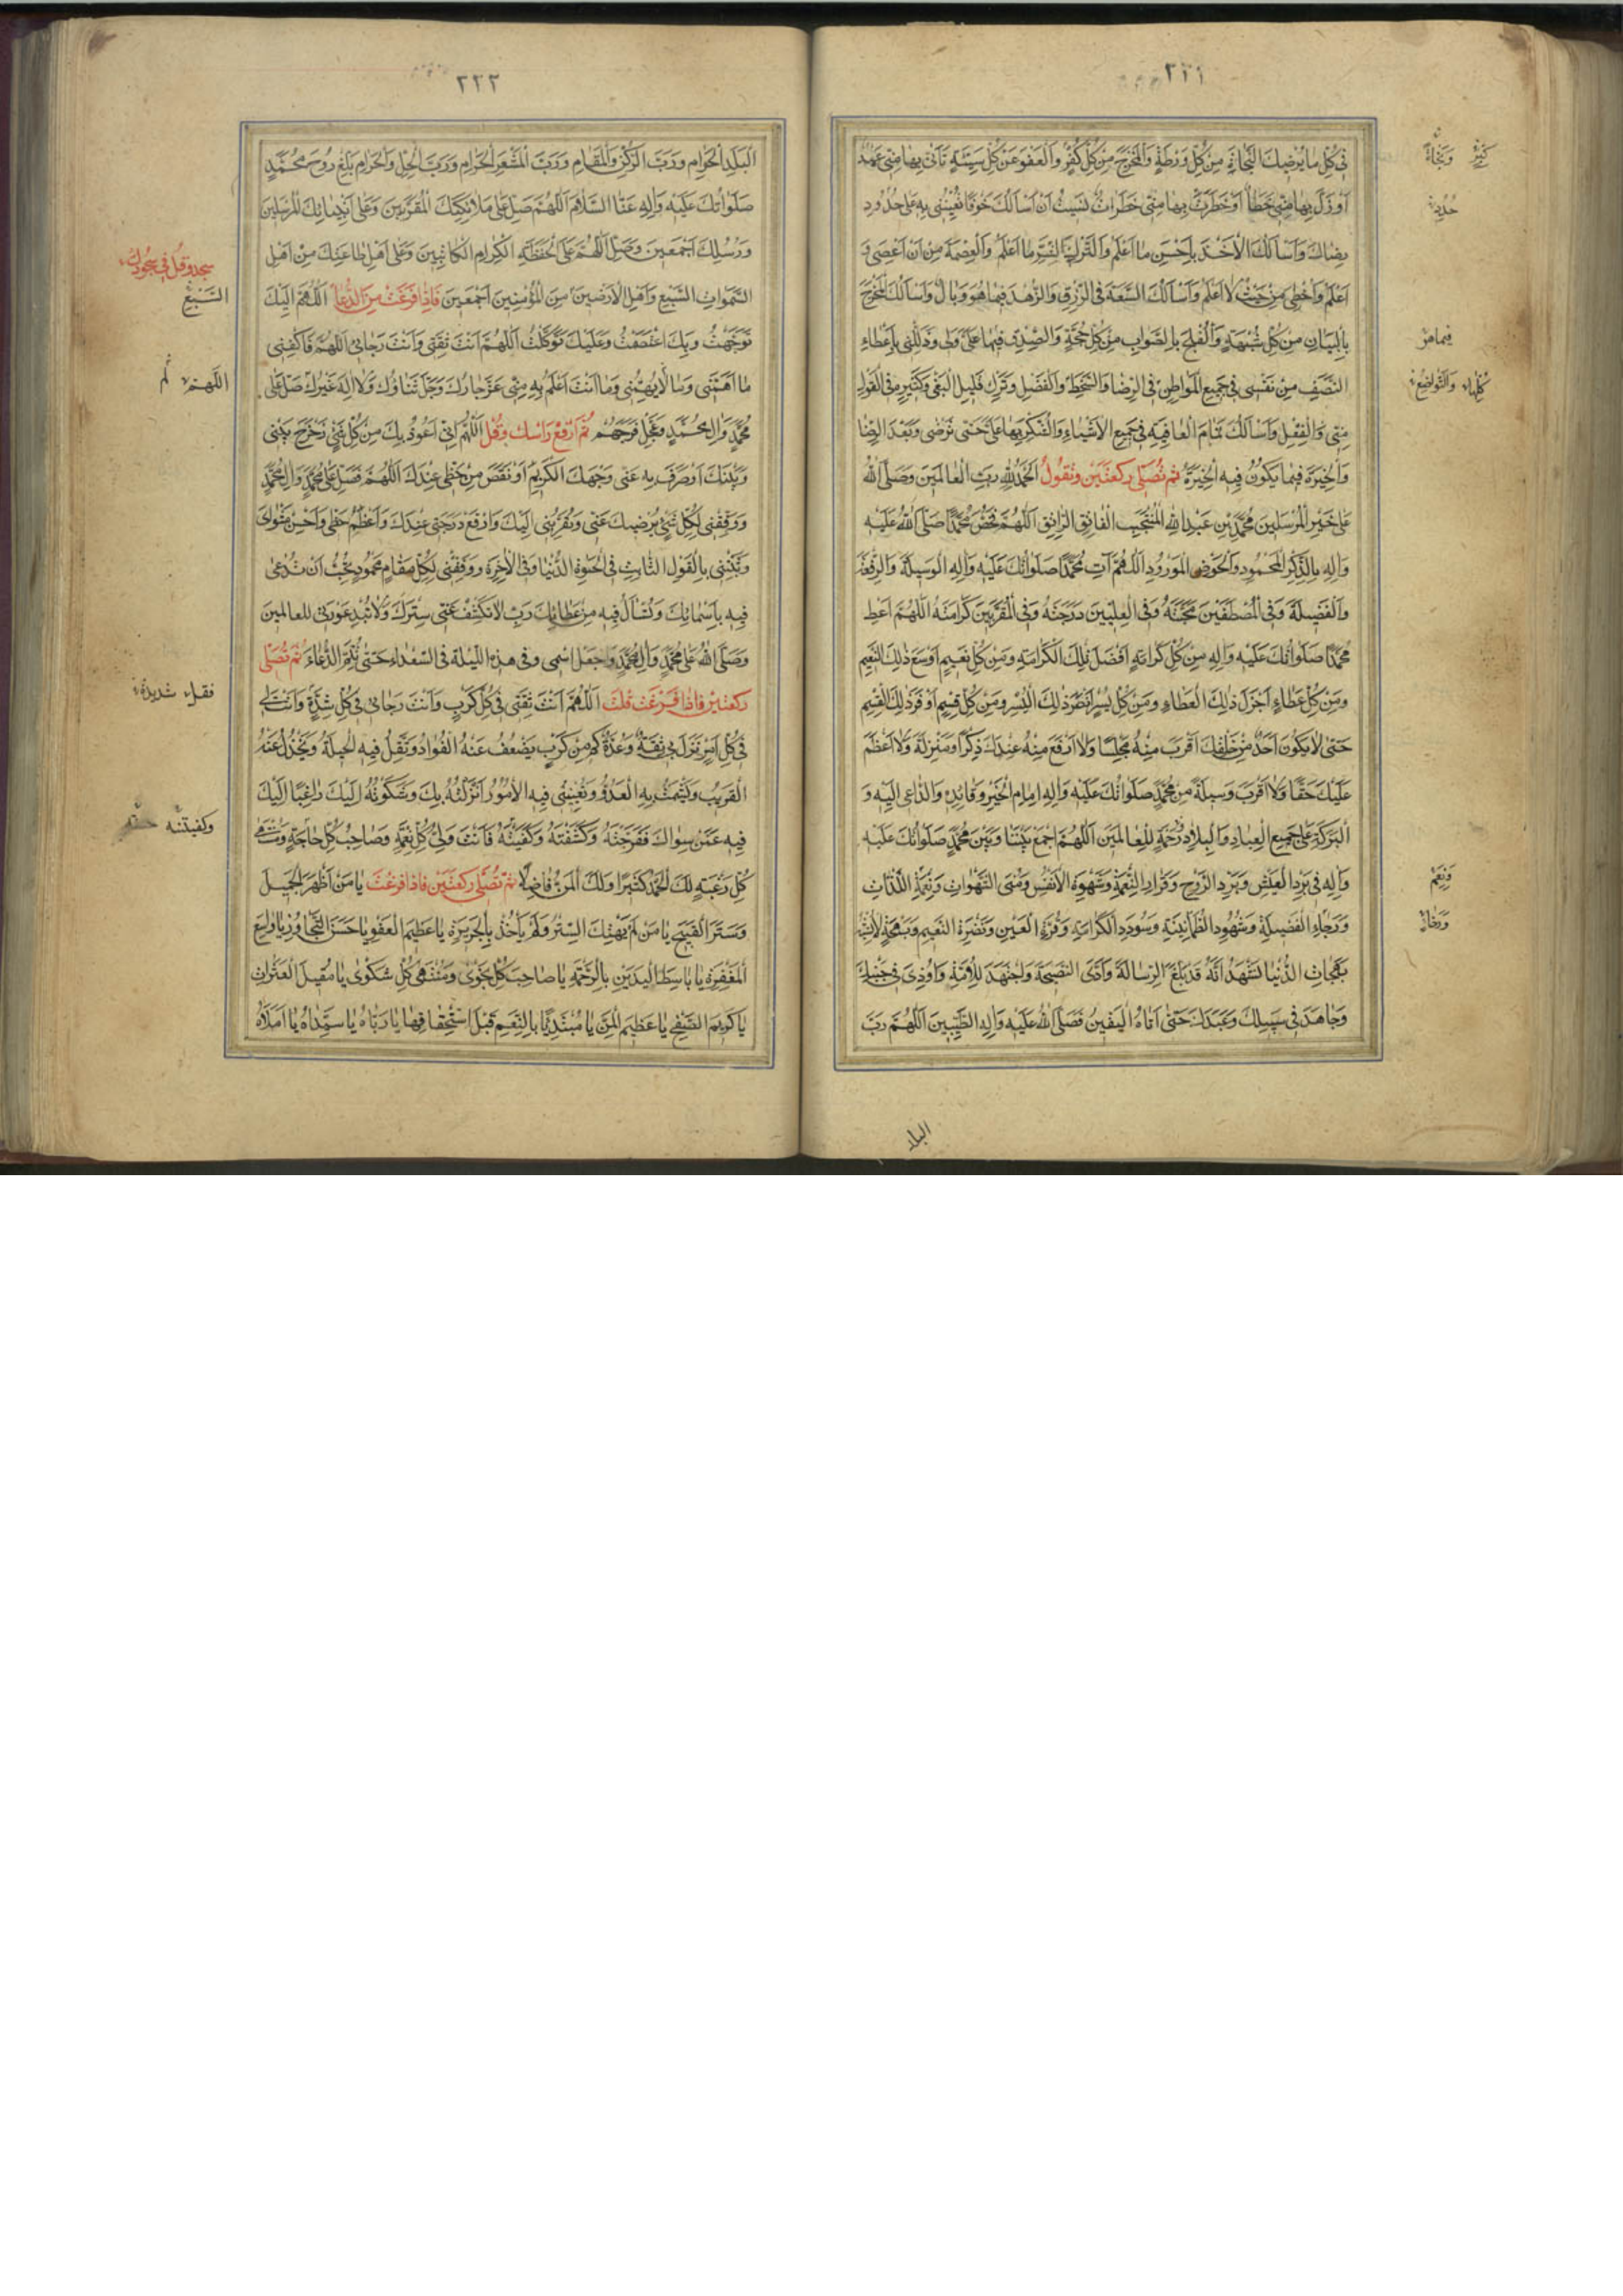 ٢٢١
فِي كُلِّ مَا يُرْضِيكَ النَّجَاةَ مِنْ كُلِّ وَرْطَةٍ وَالْمَخْرَجَ مِنْ كُلِّ كُفْرٍ وَالْعَفْوَ عَنْ كُلِّ سَيِّئَةٍ تَأْتِي بِهَا مِنِّي عَمْدٌ
كَثِيرٌ وَنَجَاةٌ
أَوْ زَلَّ بِهَا مِنِّي خَطَأٌ أَوْ خَطَرَتْ بِهَا مِنِّي خَطَرَاتٌ نَسِيتُ أَنْ أَسْأَلُكَ خَوْفًا تُعِينُنِي بِهِ عَلَى حُدُودِ
رِضَاكَ وَأَسْأَلُكَ الْأَخْذَ بِأَحْسَنِ مَا أَعْلَمُ وَالتَّرْكَ لِشَرِّ مَا أَعْلَمُ وَالْعِصْمَةَ مِنْ أَنْ أَعْصِيَ وَ
أَعْلَمُ وَأُخْطِئَ مِنْ حَيْثُ لَا أَعْلَمُ وَأَسْأَلُكَ السَّعَةَ فِي الرِّزْقِ وَالزُّهْدَ فِيمَا هُوَ وَبَالٌ وَأَسْأَلُكَ الْمَخْرَجَ
بِالْبَيَانِ مِنْ كُلِّ شُبْهَةٍ وَالْفَلْجَ بِالصَّوَابِ مِنْ كُلِّ حُجَّةٍ وَالصِّدْقَ فِيمَا عَلَيَّ وَلِي وَذَلِّلْنِي بِإِعْطَاءِ
النَّصَفِ مِنْ نَفْسِي فِي جَمِيعِ الْمَوَاطِنِ فِي الرِّضَا وَالسَّخَطِ وَالْفَضْلِ وَتَرْكِ قَلِيلِ الْبَغْيِ وَكَثِيرِهِ فِي الْقَوْلِ
كُلِّهَا وَالتَّوَاضُعِ
مِنِّي وَالْفِعْلِ وَأَسْأَلُكَ تَمَامَ الْعَافِيَةِ فِي جَمِيعِ الْأَشْيَاءِ وَالشُّكْرَ بِهَا عَلَيَّ حَتَّى تَرْضَى وَبَعْدَ الرِّضَا
وَالْخِيَرَةَ فِيمَا يَكُونُ فِيهِ الْخِيَرَةُ ثم تُصَلِّي رَكْعَتَيْنِ وَتَقُولُ الْحَمْدُ لِلَّهِ رَبِّ الْعَالَمِينَ وَصَلَّى اللَّهُ
عَلَى خَيْرِ الْمُرْسَلِينَ مُحَمَّدِ بْنِ عَبْدِ اللَّهِ الْمُنْتَجَبِ الْفَاتِقِ الرَّاتِقِ اللَّهُمَّ فَخُصَّ مُحَمَّدًا صَلَّى اللَّهُ عَلَيْهِ
وَآلِهِ بِالذِّكْرِ الْمَحْمُودِ وَالْحَوْضِ الْمَوْرُودِ اللَّهُمَّ آتِ مُحَمَّدًا صَلَوَاتُكَ عَلَيْهِ وَآلِهِ الْوَسِيلَةَ وَالرِّفْعَةَ
وَالْفَضِيلَةَ وَفِي الْمُصْطَفَيْنَ مَحَبَّتَهُ وَفِي الْعِلِّيِّينَ دَرَجَتَهُ وَفِي الْمُقَرَّبِينَ كَرَامَتَهُ اللَّهُمَّ أَعْطِ
مُحَمَّدًا صَلَوَاتُكَ عَلَيْهِ وَآلِهِ مِنْ كُلِّ كَرَامَةٍ أَفْضَلَ تِلْكَ الْكَرَامَةِ وَمِنْ كُلِّ نَعِيمٍ أَوْسَعَ ذَلِكَ النَّعِيمِ
وَمِنْ كُلِّ عَطَاءٍ أَجْزَلَ ذَلِكَ الْعَطَاءِ وَمِنْ كُلِّ يُسْرٍ أَنْضَرَ ذَلِكَ الْيُسْرِ وَمِنْ كُلِّ قِسْمٍ أَوْفَرَ ذَلِكَ الْقِسْمِ
حَتَّى لَا يَكُونَ أَحَدٌ مِنْ خَلْقِكَ أَقْرَبَ مِنْهُ مَجْلِسًا وَلَا أَرْفَعَ مِنْهُ عِنْدَكَ ذِكْرًا وَمَنْزِلَةً وَلَا أَعْظَمَ
عَلَيْكَ حَقًّا وَلَا أَقْرَبَ وَسِيلَةً مِنْ مُحَمَّدٍ صَلَوَاتُكَ عَلَيْهِ وَآلِهِ إِمَامِ الْخَيْرِ وَقَائِدِهِ وَالدَّاعِي إِلَيْهِ وَ
الْبَرَكَةِ عَلَى جَمِيعِ الْعِبَادِ وَالْبِلَادِ وَرَحْمَةٍ لِلْعَالَمِينَ اللَّهُمَّ اجْمَعْ بَيْنَنَا وَبَيْنَ مُحَمَّدٍ صَلَوَاتُكَ عَلَيْهِ
وَآلِهِ فِي بَرْدِ الْعَيْشِ وَبَرْدِ الرَّوْحِ وَقَرَارِ النِّعْمَةِ وَشَهْوَةِ الْأَنْفُسِ وَمُنَى الشَّهَوَاتِ وَنِعَمِ اللَّذَّاتِ
وَرَجَاءِ الْفَضِيلَةِ وَشُهُودِ الطُّمَأْنِينَةِ وَسُودَدِ الْكَرَامَةِ وَقُرَّةِ الْعَيْنِ وَنَضْرَةِ النَّعِيمِ وَبَهْجَةٍ لَا تُشْبِهُ
بَهَجَاتِ الدُّنْيَا نَشْهَدُ أَنَّهُ قَدْ بَلَّغَ الرِّسَالَةَ وَأَدَّى النَّصِيحَةَ وَاجْتَهَدَ لِلْأُمَّةِ وَأُوذِيَ فِي جَنْبِكَ
وَجَاهَدَ فِي سَبِيلِكَ وَعَبَدَكَ حَتَّى أَتَاهُ الْيَقِينُ فَصَلَّى اللَّهُ عَلَيْهِ وَآلِهِ الطَّيِّبِينَ اللَّهُمَّ رَبَّ
البلد
٢٢٢
الْبَلَدِ الْحَرَامِ وَرَبَّ الرُّكْنِ وَالْمَقَامِ وَرَبَّ الْمَشْعَرِ الْحَرَامِ وَرَبَّ الْحِلِّ وَالْحَرَامِ بَلِّغْ رُوحَ مُحَمَّدٍ
صَلَوَاتُكَ عَلَيْهِ وَآلِهِ عَنَّا السَّلَامَ اللَّهُمَّ صَلِّ عَلَى مَلَائِكَتِكَ الْمُقَرَّبِينَ وَعَلَى أَنْبِيَائِكَ الْمُرْسَلِينَ
وَرُسُلِكَ أَجْمَعِينَ وَصَلِّ اللَّهُمَّ عَلَى الْحَفَظَةِ الْكِرَامِ الْكَاتِبِينَ وَعَلَى أَهْلِ طَاعَتِكَ مِنْ أَهْلِ
سجد وقل في سجودك
السَّمَوَاتِ السَّبْعِ وَأَهْلِ الْأَرَضِينَ مِنَ الْمُؤْمِنِينَ أَجْمَعِينَ فَإِذَا فَرَغْتَ مِنَ الدُّعَاءِ اللَّهُمَّ إِلَيْكَ
السَّبْعِ
تَوَجَّهْتُ وَبِكَ اعْتَصَمْتُ وَعَلَيْكَ تَوَكَّلْتُ اللَّهُمَّ أَنْتَ ثِقَتِي وَأَنْتَ رَجَائِي اللَّهُمَّ فَاكْفِنِي
مَا أَهَمَّنِي وَمَا لَا يُهِمُّنِي وَمَا أَنْتَ أَعْلَمُ بِهِ مِنِّي عَزَّ جَارُكَ وَجَلَّ ثَنَاؤُكَ وَلَا إِلَهَ غَيْرُكَ صَلِّ عَلَى
مُحَمَّدٍ وَآلِ مُحَمَّدٍ وَعَجِّلْ فَرَجَهُمْ ثُمَّ ارْفَعْ رَأْسَكَ وَقُلْ اللَّهُمَّ إِنِّي أَعُوذُ بِكَ مِنْ كُلِّ شَيْءٍ زَحْزَحَ بَيْنِي
وَبَيْنَكَ أَوْ صَرَفَ بِهِ عَنِّي وَجْهَكَ الْكَرِيمَ أَوْ نَقَصَ مِنْ حَظِّي عِنْدَكَ اللَّهُمَّ فَصَلِّ عَلَى مُحَمَّدٍ وَآلِ مُحَمَّدٍ
وَوَفِّقْنِي لِكُلِّ شَيْءٍ يُرْضِيكَ عَنِّي وَيُقَرِّبُنِي إِلَيْكَ وَارْفَعْ دَرَجَتِي عِنْدَكَ وَأَعْظِمْ حَظِّي وَأَحْسِنْ مَثْوَايَ
وَثَبِّتْنِي بِالْقَوْلِ الثَّابِتِ فِي الْحَيَوةِ الدُّنْيَا وَفِي الْآخِرَةِ وَوَفِّقْنِي لِكُلِّ مَقَامٍ مَحْمُودٍ تُحِبُّ أَنْ تُدْعَى
فِيهِ بِأَسْمَائِكَ وَتُسْأَلُ فِيهِ مِنْ عَطَائِكَ رَبِّ لَا تَكْشِفْ عَنِّي سِتْرَكَ وَلَا تُبْدِ عَوْرَتِي لِلْعَالَمِينَ
وَصَلَّى اللَّهُ عَلَى مُحَمَّدٍ وَآلِ مُحَمَّدٍ وَاجْعَلِ اسْمِي وَفِي هَذِهِ اللَّيْلَةِ فِي السُّعَدَاءِ حَتَّى تُتِمَّ الدُّعَاءَ ثُمَّ تُصَلِّي
رَكْعَتَيْنِ فَإِذَا فَرَغْتَ قُلْتَ اللَّهُمَّ أَنْتَ ثِقَتِي فِي كُلِّ كَرْبٍ وَأَنْتَ رَجَائِي فِي كُلِّ شِدَّةٍ وَأَنْتَ لِي
فِي كُلِّ أَمْرٍ نَزَلَ بِي ثِقَةٌ وَعُدَّةٌ كَمْ مِنْ كَرْبٍ يَضْعُفُ عَنْهُ الْفُؤَادُ وَتَقِلُّ فِيهِ الْحِيلَةُ وَيَخْذُلُ عَنْهُ
الْقَرِيبُ وَيَشْمَتُ بِهِ الْعَدُوُّ وَتُعْيِينِي فِيهِ الْأُمُورُ أَنْزَلْتُهُ بِكَ وَشَكَوْتُهُ إِلَيْكَ رَاغِبًا إِلَيْكَ
فِيهِ عَمَّنْ سِوَاكَ فَفَرَّجْتَهُ وَكَشَفْتَهُ وَكَفَيْتَهُ فَأَنْتَ وَلِيُّ كُلِّ نِعْمَةٍ وَصَاحِبُ كُلِّ حَاجَةٍ وَمُنْتَهَى
وكفيتنيه
كُلِّ رَغْبَةٍ لَكَ الْحَمْدُ كَثِيرًا وَلَكَ الْمَنُّ فَاضِلًا ثُمَّ تُصَلِّي رَكْعَتَيْنِ فَإِذَا فَرَغْتَ يَا مَنْ أَظْهَرَ الْجَمِيلَ
وَسَتَرَ الْقَبِيحَ يَا مَنْ لَمْ يَهْتِكَ السِّتْرَ وَلَمْ يَأْخُذْ بِالْجَرِيرَةِ يَا عَظِيمَ الْعَفْوِ يَا حَسَنَ التَّجَاوُزِ يَا وَاسِعَ
الْمَغْفِرَةِ يَا بَاسِطَ الْيَدَيْنِ بِالرَّحْمَةِ يَا صَاحِبَ كُلِّ نَجْوَى وَمُنْتَهَى كُلِّ شَكْوَى يَا مُقِيلَ الْعَثَرَاتِ
يَا كَرِيمَ الصَّفْحِ يَا عَظِيمَ الْمَنِّ يَا مُبْتَدِئًا بِالنِّعَمِ قَبْلَ اسْتِحْقَاقِهَا يَا رَبَّاهُ يَا سَيِّدَاهُ يَا أَمَلَاهُ